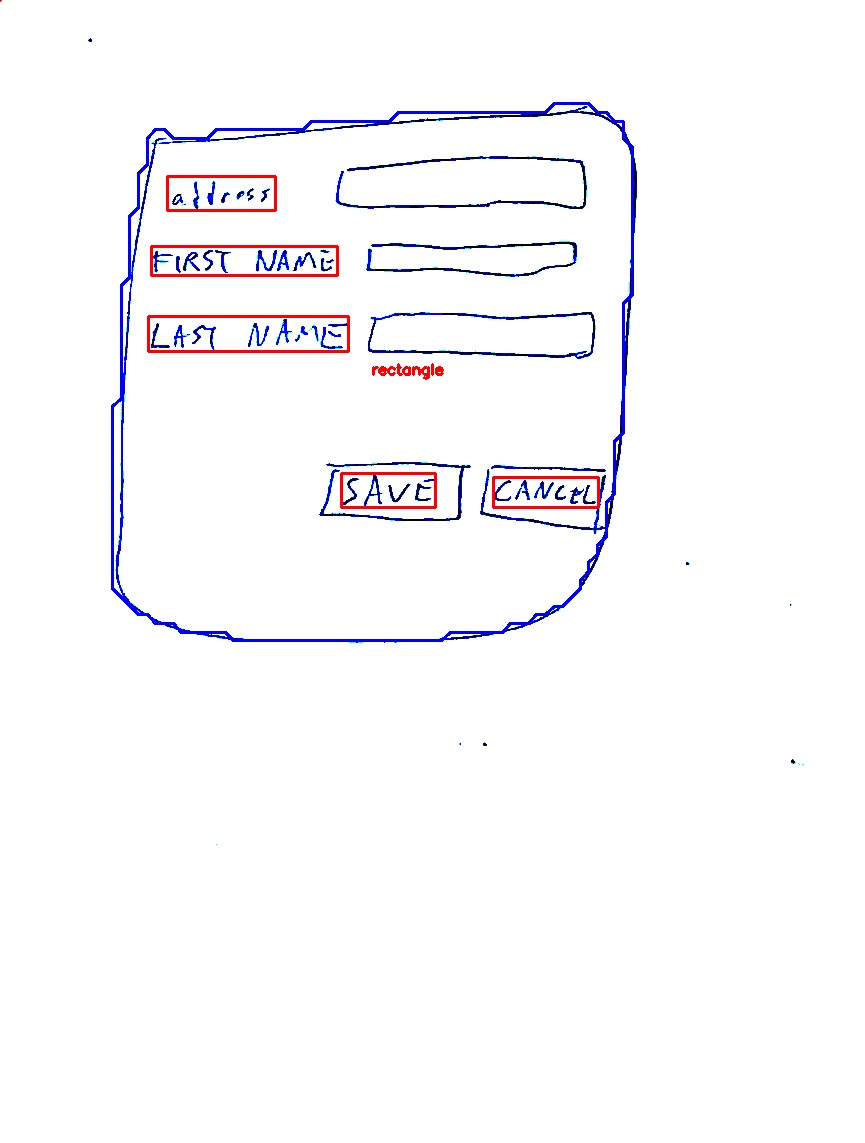 address
FIRST NAME
LAST NAME
rectangle
SAVE CANCEL